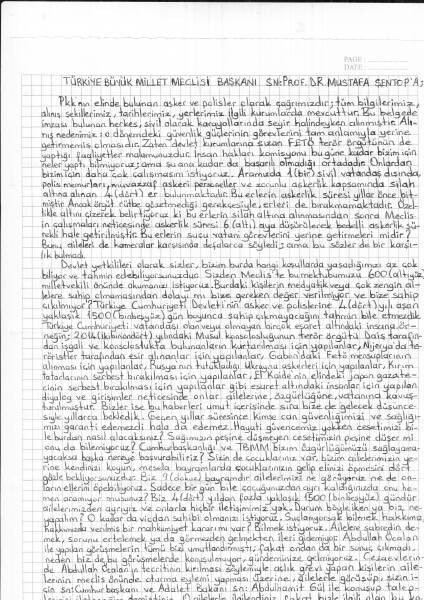 PAGE:
DATE:
TÜRKİYE BÜYÜK MİLLET MECLİSİ BAŞKANI SN: PROF. DR. MUSTAFA ŞENTOP'A;
Pkk'nın elinde bulunan asker ve polisler olarak çağrımızdır; tüm bilgilerimiz,
alınış şekillerimiz, tarihlerimiz, yerlerimiz ilgili kurumlarda mevcuttur. Bu belgede
imzası bulunan herkes, sivil olarak karayollarında seyir halindeyken alınmıştır. Alı-
nış nedenimiz: o dönemdeki güvenlik güçlerinin görevlerini tam anlamıyla yerine
getirmemiş olmasıdır. Zaten devlet kurumlarına sızan FETÖ terör örgütünün de
yaptığı faaliyetler malumunuzdur. İnsan hakları komisyonu bugüne kadar bizim için
neler yaptı bilmiyoruz; ama şuana kadar da başarılı olmadığı ortadadır. Onlardan
bizim için daha çok çalışmasını istiyoruz. Aramızda 1 (bir) sivil vatandaş dışında,
polis memurları, muvazzaf askeri personeller ve zorunlu askerlik kapsamında silah
altına alınan 4 (dört) er bulunmaktadır. Bu erlerin askerlik süresi yıllar önce bit-
miştir. Ancak örgüt rütbe gözetmediği gerekçesiyle, erleri de bırakmamaktadır. Öze-
likle altını çizerek belirtiyoruz ki bu erlerin silah altına alınmasından sonra Meclis-
in çalışmaları neticesinde askerlik süresi 6 (altı) aya düşürülerek bedelli askerlik sü-
rekli hale getirilmiştir. Bu erlerin suçu vatani görevlerini yerine getirmeleri midir?
Bunu aileleri de kameralar karşısında defalarca söyledi; ama bu sözler de bir karşı-
lık bulmadı.
Devlet yetkilileri olarak sizler, bizim burda hangi koşullarda yaşadığımızı az çok
biliyor ve tahmin edebiliyorsunuzdur. Sizden Meclis'te bu mektubumuzu 600 (altıyüz)
milletvekili önünde okumanızı istiyoruz. Burdaki kişilerin medyatik veya çok zengin ai-
lelere sahip olmamasından dolayı mı bize gereken değer verilmiyor ve bize sahip
çıkılmıyor? Türkiye Cumhuriyeti Devleti'nin asker ve polislerine 4 (dört) yılı aşan
yaklaşık 1500 (binbeşyüz) gün boyunca sahip çıkmayacağını tahmin bile etmezdik.
Türkiye Cumhuriyeti vatandaşı olan veya olmayan birçok esaret altındaki insana, ör-
neğin; 2014 (ikibinondört) yılındaki Musul konsolosluğunun terör örgütü Daiş tarafın-
dan işgali ve konsoloslukta bulunanların kurtarılması için yapılanlar, Nijerya'da te-
röristler tarafından esir alınanlar için yapılanlar, Gabon'daki Fetö mensuplarının
alınması için yapılanlar, Rusya'nın tutukladığı Ukrayna askerleri için yapılanlar, Kırım
tatarlarının serbest bırakılması için yapılanlar, El Kaide'nin elindeki Japon gazete-
cinin serbest bırakılması için yapılanlar gibi esaret altındaki insanlar için yapılan
diyalog ve girişimler neticesinde onlar; ailelerine, özgürlüğüne, vatanına kavuş-
turulmuştur. Bizler ise bu haberleri umut içerisinde sıra bize de gelecek düşünce-
siyle yıllarca bekledik. Geçen yıllar süresince Kimse can güvenliğimizi ve sağlığı-
mızı garanti edemezdi hala da edemez. Hayati güvencemiz yokken cesetimizi bi-
le burdan nasıl alacaksınız? Sağımızın peşine düşmeyen cesetimizin peşine düşer mi
onu da bilemiyoruz? Cumhurbaşkanlığı ve TBMM bizim özgürlüğümüzü sağlayama-
yacaksa başka nereye başvurabiliriz? Sizin çocuklarınız var, bizim ailelerimizin ye-
rine kendinizi koyun, mesela bayramlarda çocuklarınızın gelip elinizi öpmesini dört
gözle bekliyorsunuzdur. Biz 9 (dokuz) bayramdır ailelerimizi ne görüyoruz ne de on-
ların ellerini öpebiliyoruz. Sadece bir gün bile çocuğunuzdan ayrı kaldığınızda onu he-
men aramıyor musunuz? Biz 4 (dört) yıldan fazla yaklaşık 1500 (binbeşyüz) gündür
ailelerimizden ayrıyız ve onlarla hiçbir iletişimimiz yok. Durum böyleyken ya biz, ne
yapalım? O kadar da vicdan sahibi olmanızı istiyoruz. Suçlanıyorsak bilmek hakkımız,
hakkımızda verilmiş bir mahkumiyet kararı mı var? Bilmek istiyoruz. Ailelere sabredin de-
mek, sorunu ertelemek ya da görmezden gelmekten ileri gidemiyor. Abdullah Öcalan
ile yapılan görüşmelerin tümü bizi umutlandırmıştı; fakat ondan da bir sonuç çıkmadı,
neden biz de bu görüşmelerde konuşulmuyor, gündeminize gelmiyoruz. Cezaevlerin-
de Abdullah Öcalan'ın tecritinin kırılması söylemiyle açlık grevi yapan kişilerin aile-
lerinin meclis önünde oturma eylemi yapması üzerine; ailelerle görüşüp, sizin i-
çin sn: Cumhurbaşkanı ve Adalet Bakanı sn: Abdulhamit Gül ile konuşup talep-